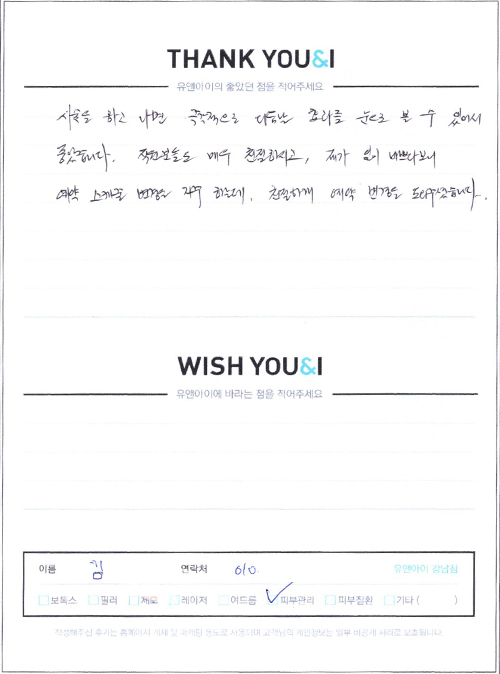 THANK YOU&I
유앤아이의 좋았던 점을 적어주세요
시술을 하고 나면 즉각적으로 대답난 효과를 눈으로 볼 수 있어서
좋았습니다. 직원분들도 매우 친절하시고, 제가 일이 바쁘다보니
예약 스케줄 변경을 자주 하는데, 친절하게 예약 변경을 도와주셨습니다.
WISH YOU&I
유앤아이에 바라는 점을 적어주세요
이름 김 연락처 010. 유앤아이 강남점
보톡스 필러 제모 레이저 여드름 피부관리 피부질환 기타 ( )
작성해주신 후기는 홈페이지 게재 및 마케팅 용도로 사용되며 고객님의 개인정보는 일부 비공개 처리로 보호됩니다.